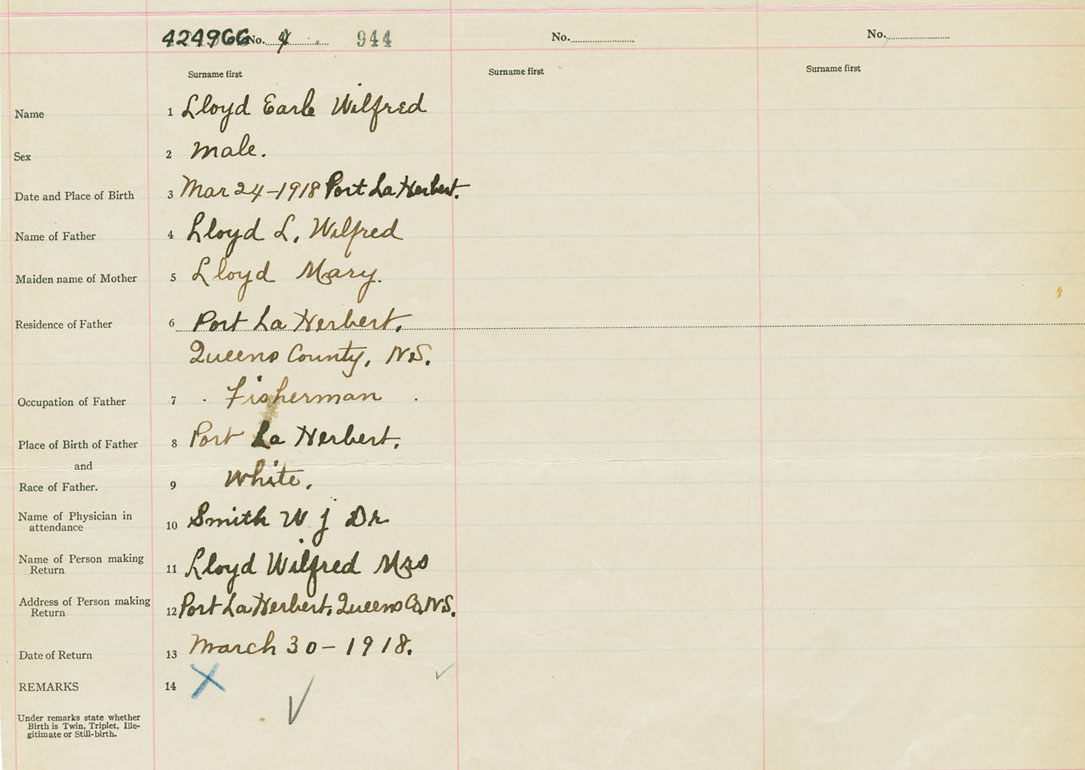 424966 No. 4 944 No. No.
Surname first Surname first Surname first
Name 1 Lloyd Earle Wilfred
Sex 2 Male.
Date and Place of Birth 3 Mar 24-1918 Port La Herbert.
Name of Father 4 Lloyd L. Wilfred
Maiden name of Mother 5 Lloyd Mary.
Residence of Father 6 Port La Herbert.
Queens County, N.S.
Occupation of Father 7 Fisherman
Place of Birth of Father 8 Port La Herbert.
and
Race of Father. 9 White.
Name of Physician in
attendance 10 Smith W J Dr
Name of Person making
Return 11 Lloyd Wilfred Mrs
Address of Person making
Return 12 Port La Herbert, Queens Co, N.S.
Date of Return 13 March 30-1918.
REMARKS 14
Under remarks state whether
Birth is Twin, Triplet, Ille-
gitimate or Still-birth.